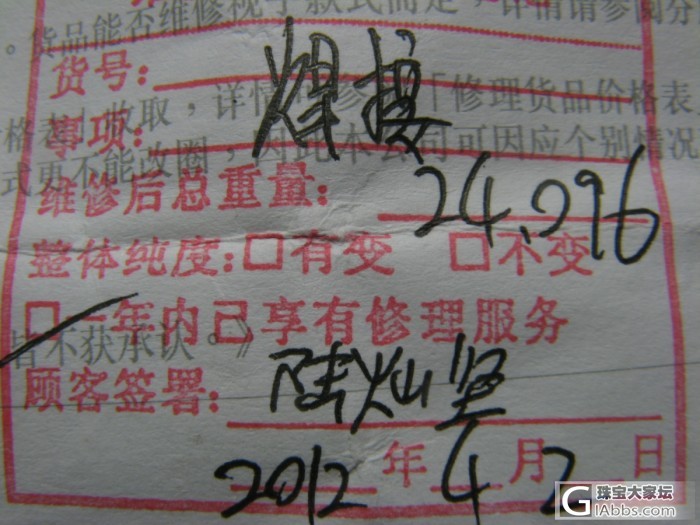 。货品能否维修视乎款式而定，详情请参阅分
货号：
焊接
格表」收取，详情请参阅「修理货品价格表
事项：
式更不能改圈，因此本公司可因应个别情况
维修后总重量：24.296
整体纯度：□有变 □不变
□一年内已享有修理服务
皆不获承认。》
顾客签署：陆灿坚
2012年4月2日
珠宝大家坛
GIabbs.com